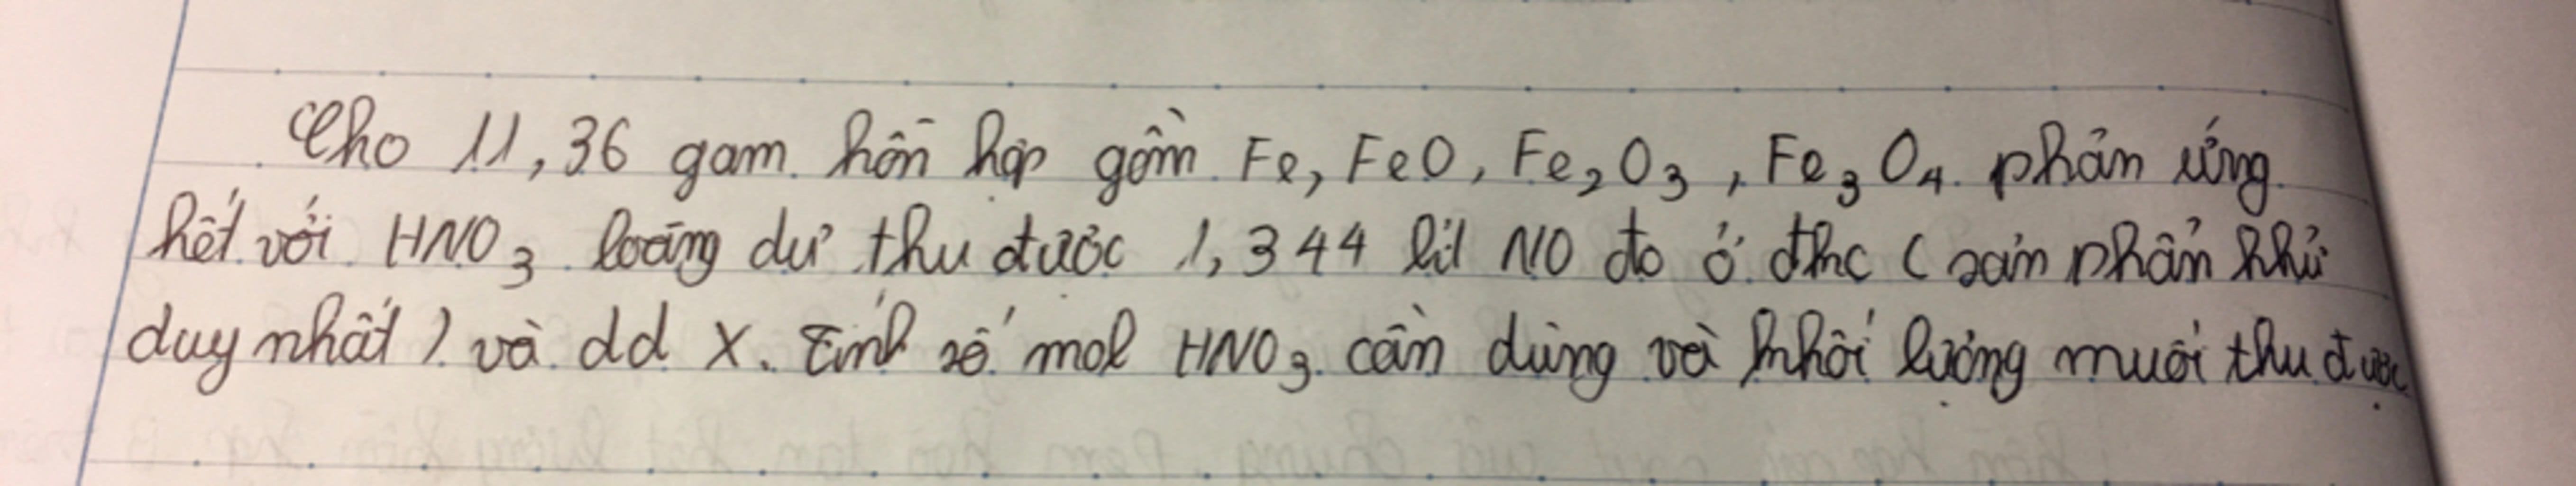 Cho 11,36 gam hỗn hợp gồm Fe, FeO, Fe₂O₃, Fe₃O₄ phản ứng
hết với HNO₃ loãng dư thu được 1,344 lít NO đo ở đkc (sản phẩn khử
duy nhất) và dd X. Tính số mol HNO₃ cần dùng và khối lượng muối thu được